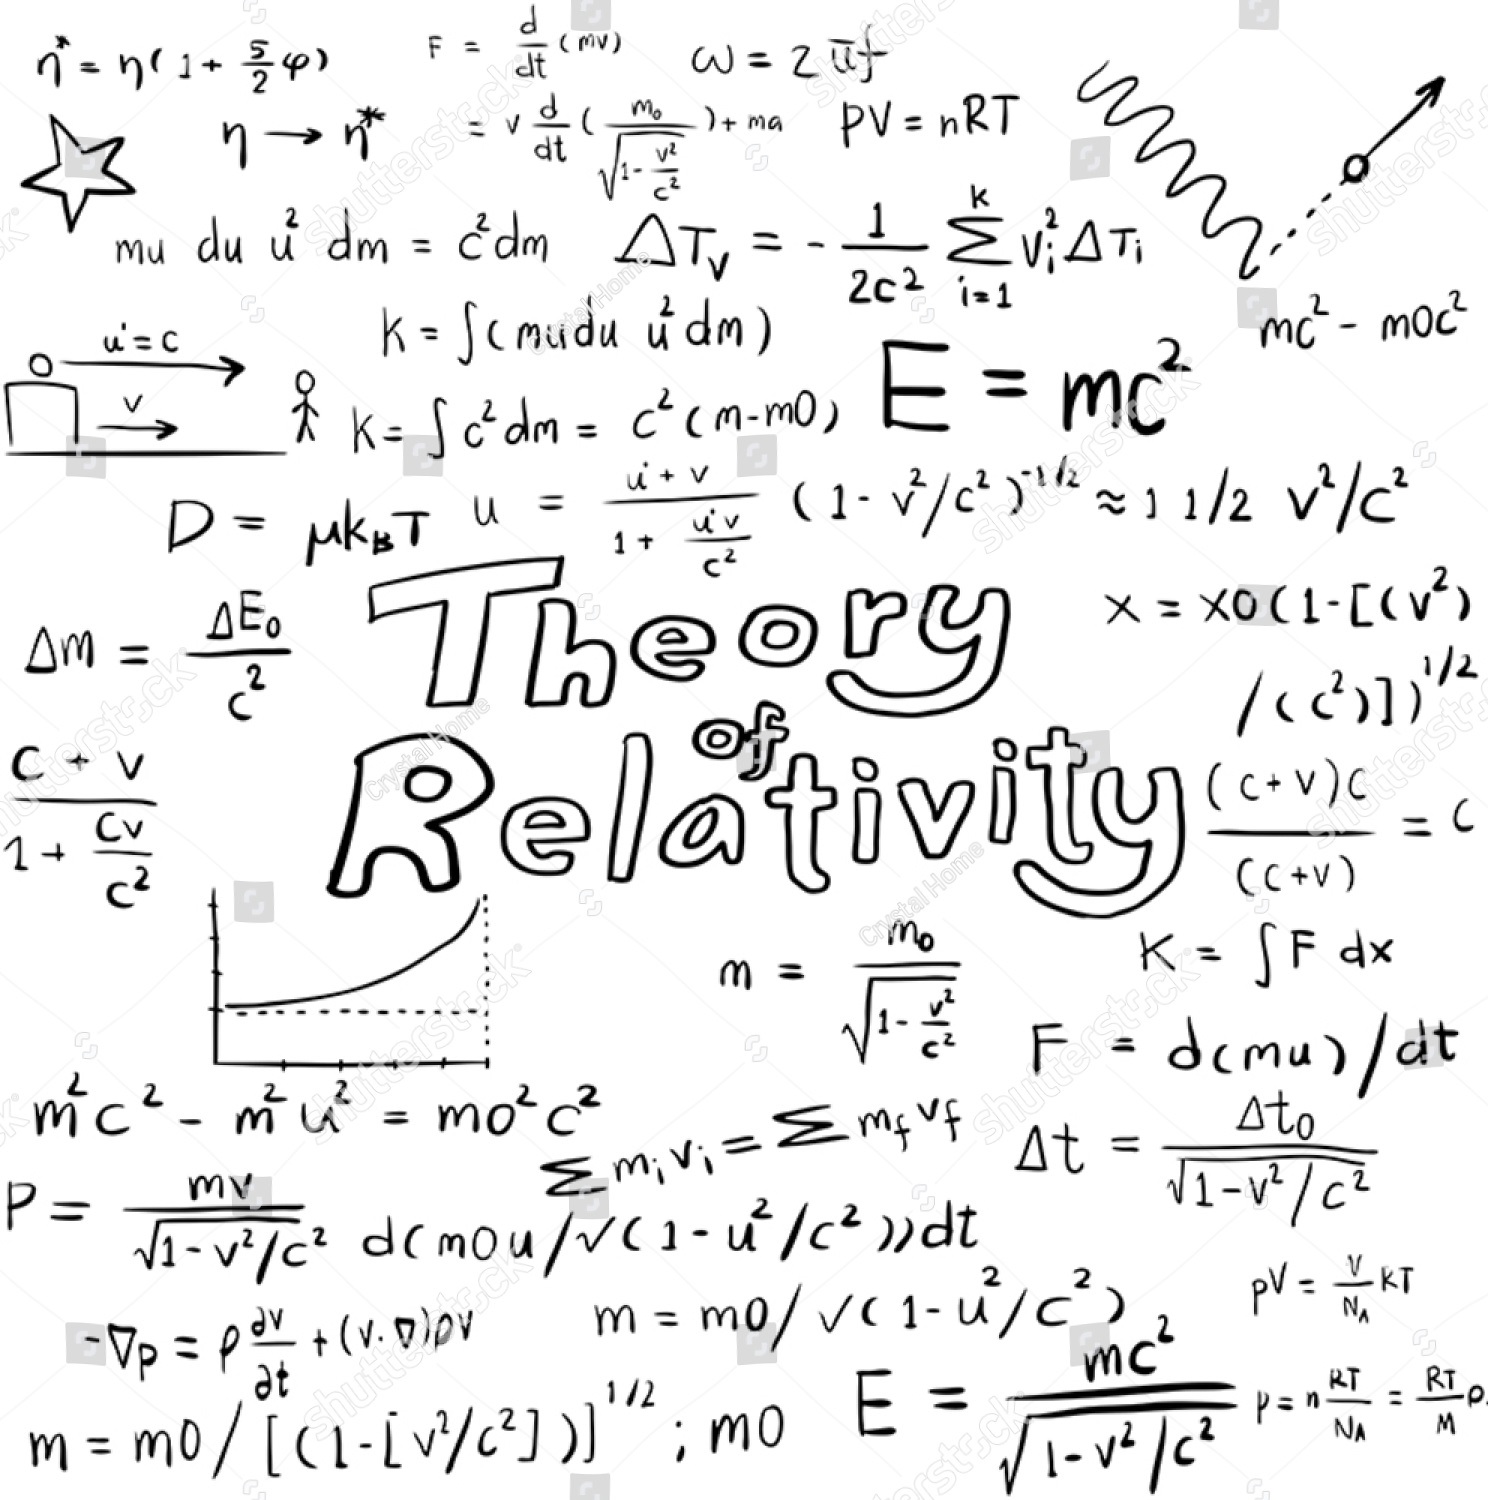 η* = η(1 + 5/2 φ)
F = d/dt (mv)
ω = 2πf
η → η*
= v d/dt (m₀/√1-v²/c²) + ma
PV = nRT
mu du u² dm = c²dm
ΔTv = - 1/2c² Σ k i=1 vi² ΔTi
mc² - m0c²
u' = c
v
K = ∫(mudu u² dm)
E = mc²
K = ∫c²dm = c²(m-m0)
D = μkBT
u = u'+v / 1 + u'v/c²
(1 - v²/c²)-1/2 ≈ 1 1/2 v²/c²
Theory
of
Relativity
Δm = ΔE₀/c²
x = x0(1-[(v²)
/(c²)])1/2
c + v / 1 + cv/c²
(c+v)c / (c+v) = c
m = m₀/√1-v²/c²
K = ∫F dx
F = d(mu)/dt
m²c² - m²u² = m0²c²
Σmivi = Σmfvf
Δt = Δt₀/√1-v²/c²
P = mv/√1-v²/c²
d(m0u/√(1-u²/c²))dt
pV = V/NA KT
m = m0/√(1-u²/c²)
-∇p = ρ ∂v/∂t + (v·∇)ρv
E = mc²/√1-v²/c²
p = n RT/NA = RT/M ρ
m = m0/[(1-[v²/c²])]1/2 ; m0
shutterstock
Crystal Home